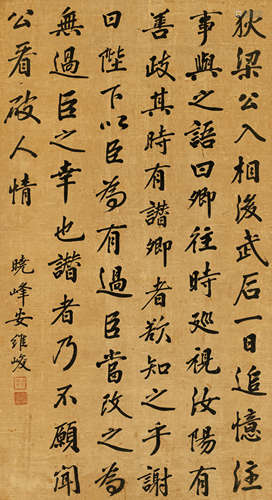 狄梁公入相後武后一日追憶往
事與之語曰卿往時巡視汝陽有
善政其時有譖卿者欲知之乎謝
曰陛下以臣為有過臣當改之為
無過臣之幸也譖者乃不願聞
公看破人情
曉峰安維峻